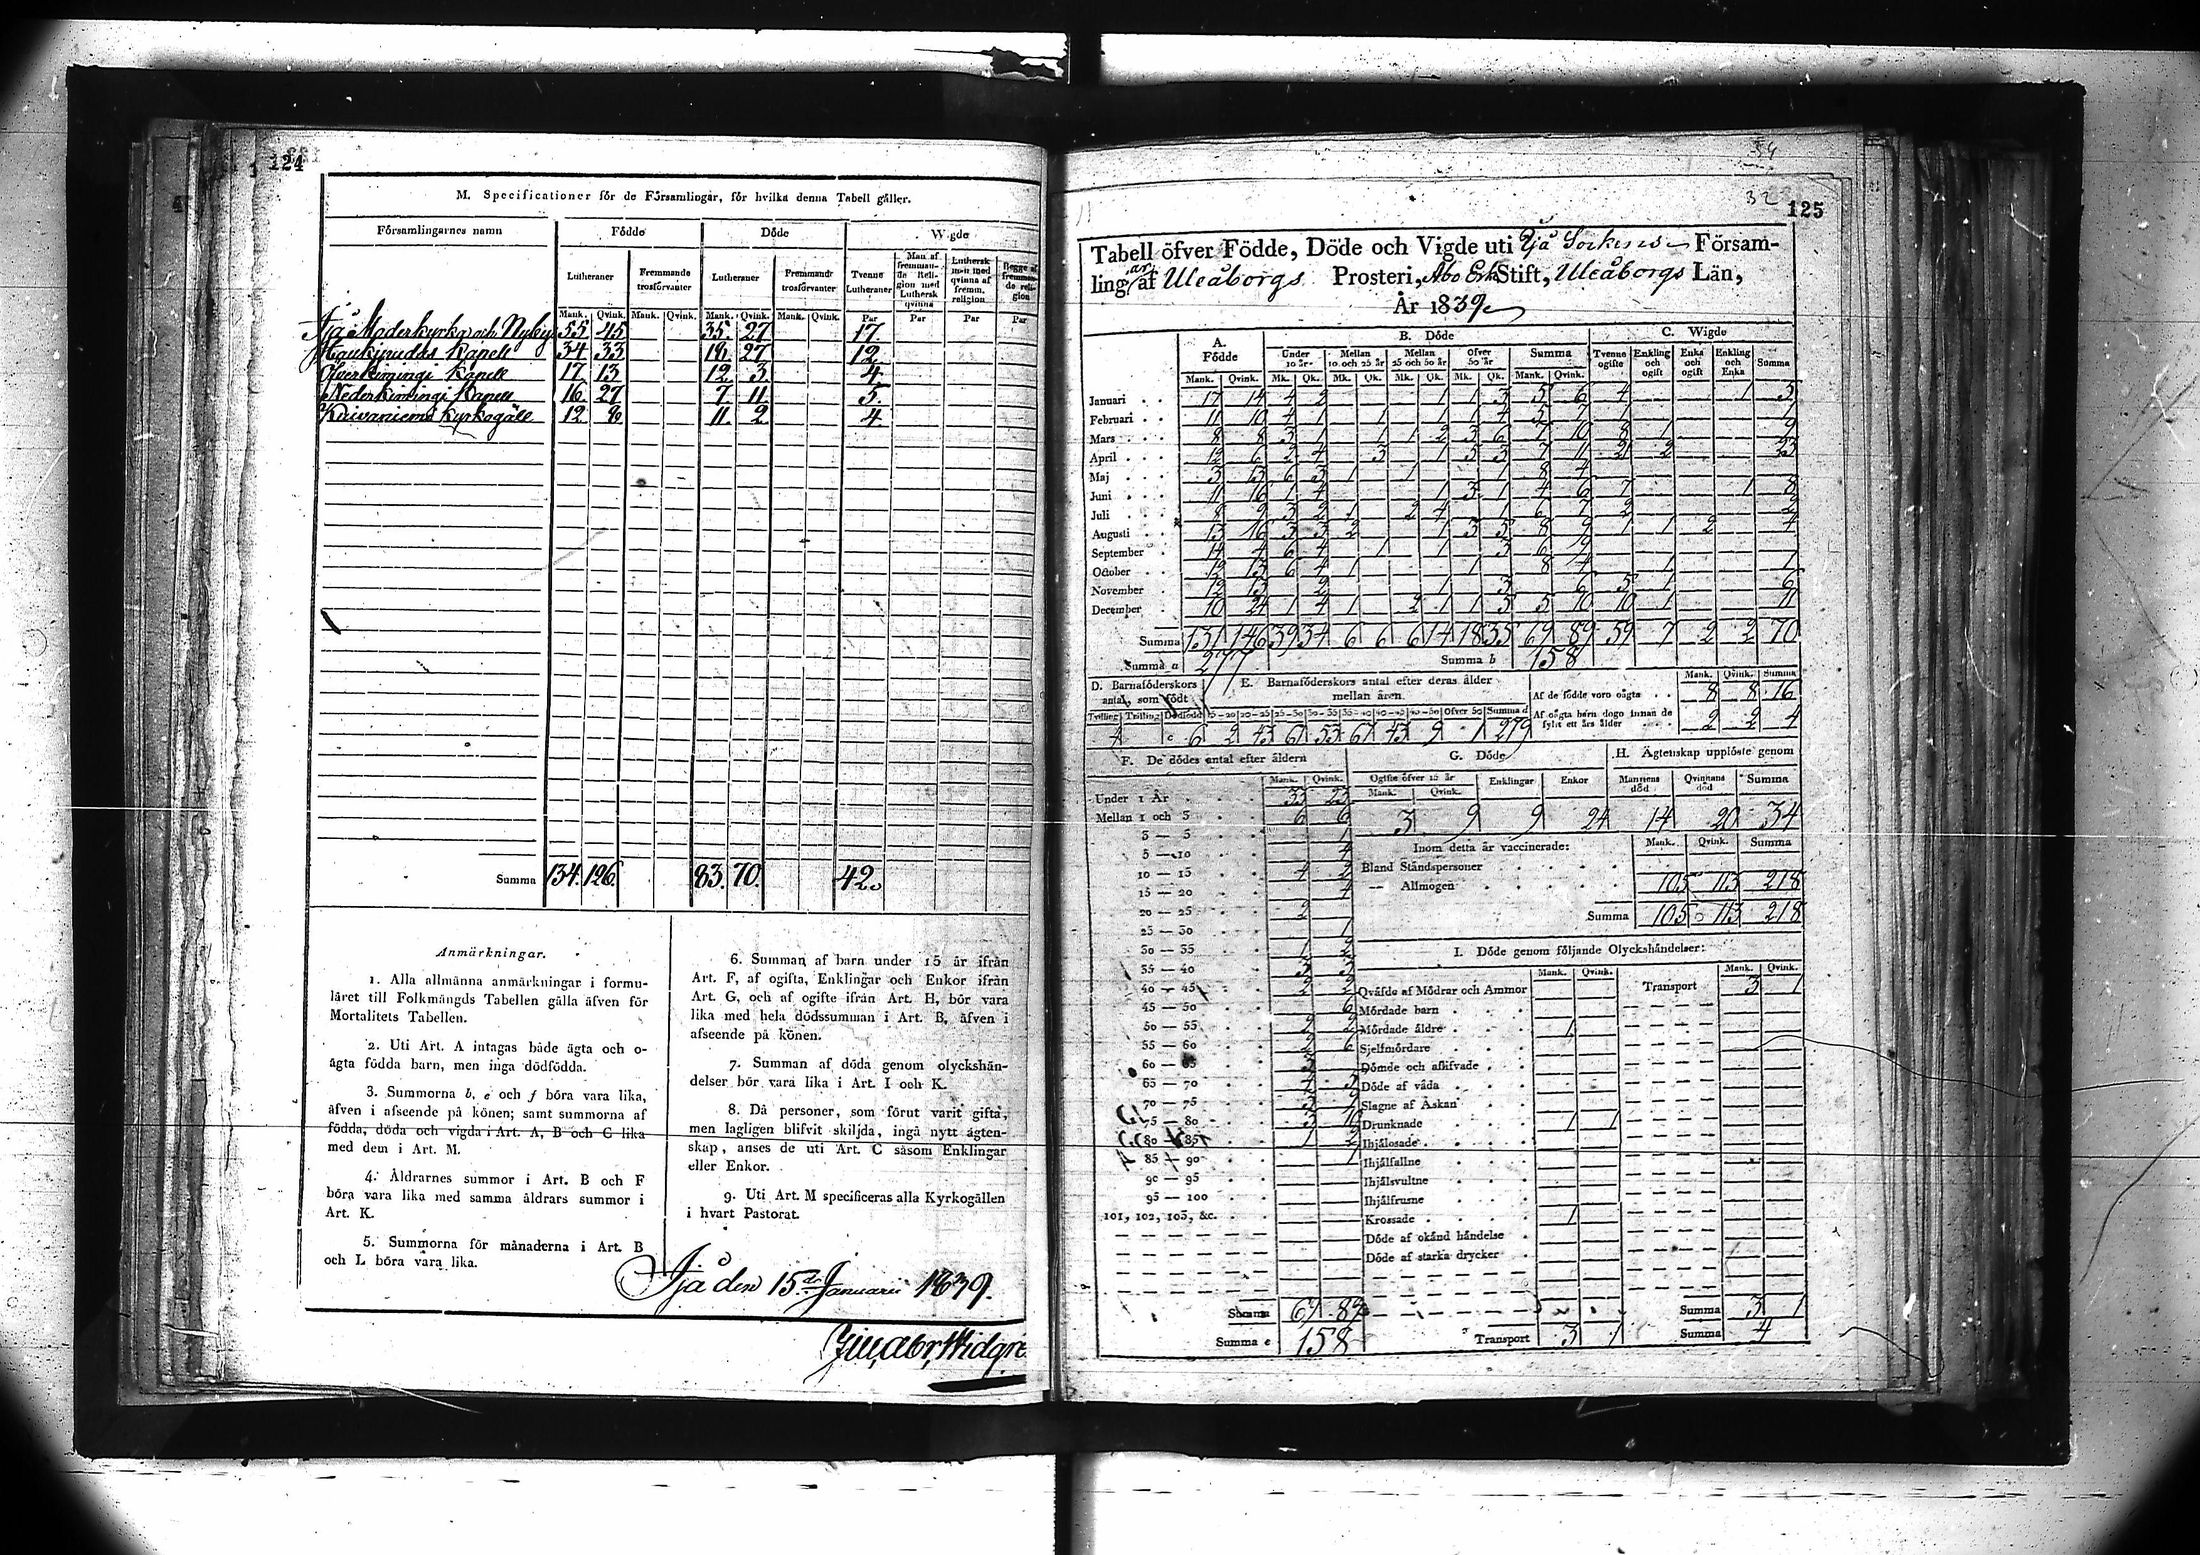 124
M. Specificationer för de Församlingar, för hvilka denna Tabell gäller.
Församlingarnes namn Födde Döde Wigde
Lutheraner Fremmande trosförvanter Lutheraner Fremmande trosförvanter Tvenne Lutheraner Man af fremmande Religion med Luthersk qvinna Luthersk man med qvinna af fremm. religion Begge af fremmande religion
Mank. Qvink. Mank. Qvink. Mank. Qvink. Mank. Qvink. Par Par Par Par
Ijå Moderkyrka och Nyby 55 45 35 27 17
Haukipudas Kapell 34 33 18 27 12
Öfverkimingi Kapell 17 13 12 3 4
Nederkimingi Kapell 16 27 7 11 5
Kuivaniemi Kyrkogäll 12 8 11 2 4
Summa 134 126 83 70 42
Anmärkningar.
1. Alla allmänna anmärkningar i formu-
läret till Folkmängds Tabellen gälla äfven för
Mortalitets Tabellen.
2. Uti Art. A intagas både ägta och o-
ägta födda barn, men inga dödfödda.
3. Summorna b, e och f böra vara lika,
äfven i afseende på könen; samt summorna af
födda, döda och vigda i Art. A, B och C lika
med dem i Art. M.
4. Åldrarnes summor i Art. B och F
böra vara lika med samma åldrars summor i
Art. K.
5. Summorna för månaderna i Art. B
och L böra vara lika.
6. Summan af barn under 15 år ifrån
Art. F, af ogifta, Enklingar och Enkor ifrån
Art. G, och af ogifte ifrån Art. H, bör vara
lika med hela dödssumman i Art. B, äfven i
afseende på könen.
7. Summan af döda genom olyckshän-
delser bör vara lika i Art. I och K.
8. Då personer, som förut varit gifta,
men lagligen blifvit skiljda, ingå nytt ägten-
skap, anses de uti Art. C såsom Enklingar
eller Enkor.
9. Uti Art. M specificeras alla Kyrkogällen
i hvart Pastorat.
Ijå den 15de Januarii 1839.
125
Tabell öfver Födde, Döde och Vigde uti Ijå Sockens Försam-
lingar af Uleåborgs Prosteri, Åbo Erke Stift, Uleåborgs Län,
År 1839
A. Födde B. Döde C. Wigde
Under 10 år Mellan 10 och 25 år Mellan 25 och 50 år Öfver 50 år Summa Tvenne ogifte Enkling och ogift Enka och ogift Enkling och Enka Summa
Mank. Qvink. Mk. Qk. Mk. Qk. Mk. Qk. Mk. Qk. Mank. Qvink.
Januari 17 14 4 2 1 1 3 5 6 4 1 5
Februari 11 10 4 1 1 1 1 4 5 7 1 1
Mars 8 8 3 1 1 1 2 3 6 7 10 8 1 9
April 12 6 2 4 3 1 5 3 7 11 21 2 23
Maj 3 13 6 3 1 1 1 8 4
Juni 11 16 1 4 1 3 1 4 6 7 1 8
Juli 8 9 3 2 1 2 4 1 6 7 2 2
Augusti 13 16 3 3 2 1 3 5 8 9 1 1 2 4
September 14 4 6 4 1 1 3 6 9
October 12 13 6 4 1 1 8 4 1 1
November 12 13 2 1 3 6 5 1 6
December 10 24 1 4 1 2 1 1 5 5 10 10 1 11
Summa 131 146 39 34 6 6 6 14 18 35 69 89 59 7 2 2 70
Summa a 277 Summa b 158
D. Barnaföderskors antal, som födt
E. Barnaföderskors antal efter deras ålder mellan åren
Tvilling Trilling Dödfödd 15-20 20-25 25-30 30-35 35-40 40-45 45-50 Öfver 50 Summa d
Mank. Qvink. Summa
Af de födde voro oägta 8 8 16
Af oägta barn dogo innan de fylt ett års ålder 2 2 4
F. De dödes antal efter åldern
Mank. Qvink.
Under 1 År 33 23
Mellan 1 och 3 6 6
3 — 5 1
5 — 10 4
10 — 15 4 2
15 — 20 4
20 — 25 2
25 — 30 1
30 — 35 1 2
35 — 40 3 3
40 — 45 2 2
45 — 50 6
50 — 55 2 2
55 — 60 2 6
60 — 65 3
65 — 70
70 — 75
75 — 80
80 — 85 1 2
85 — 90 1
90 — 95
95 — 100
101, 102, 103, &c.
Summa 69 89
Summa e 158
G. Döde
Ogifte öfver 15 år Enklingar Enkor
Mank. Qvink.
3 9 9 24
H. Ägtenskap upplöste genom
Mannens död Qvinnans död Summa
14 20 34
Inom detta år vaccinerade: Mank. Qvink. Summa
Bland Ståndspersoner
— Allmogen 105 113 218
Summa 105 113 218
I. Döde genom följande Olyckshändelser:
Mank. Qvink. Mank. Qvink.
Qväfde af Mödrar och Ammor Transport 3 1
Mördade barn
Mördade äldre 1
Sjelfmördare
Dömde och aflifvade
Döde af våda
Slagne af Åskan
Drunknade 1 1
Ihjälosade
Ihjälfallne
Ihjälsvultne
Ihjälfrusne
Krossade 1
Döde af okänd händelse
Döde af starka drycker
Summa 3 1
Transport 3 1 Summa 4